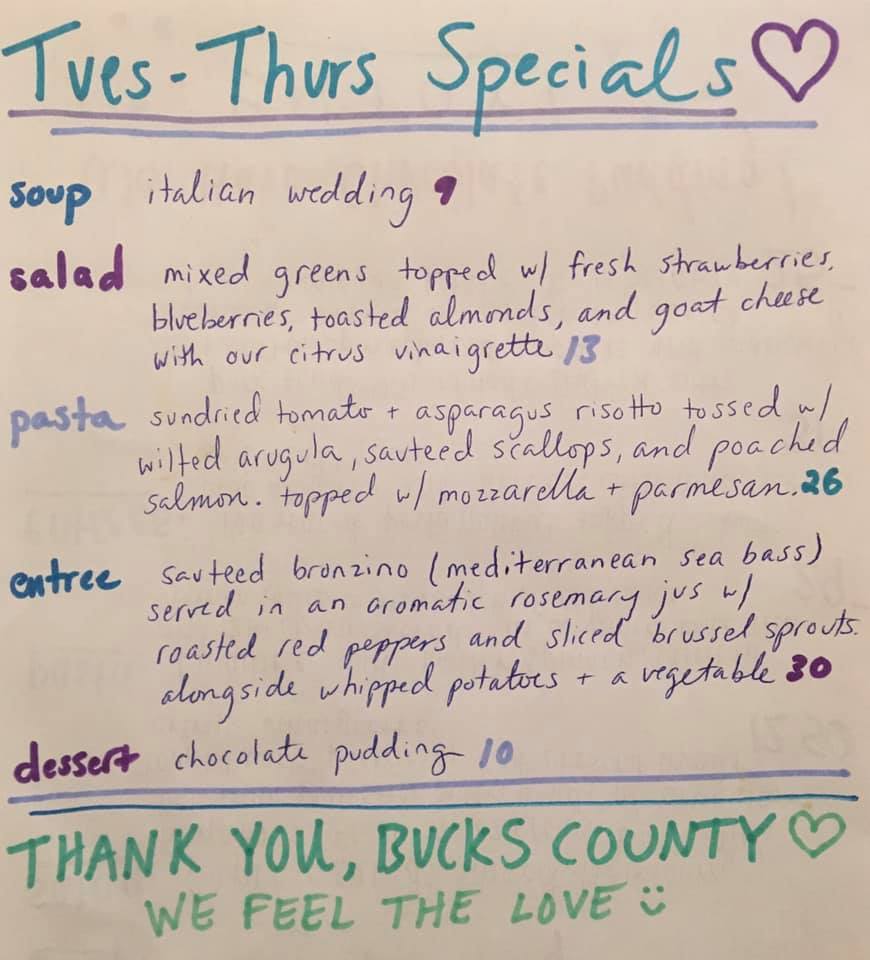 Tues - Thurs Specials
soup italian wedding 9
salad mixed greens topped w/ fresh strawberries,
blueberries, toasted almonds, and goat cheese
with our citrus vinaigrette 13
pasta sundried tomato + asparagus risotto tossed w/
wilted arugula, sauteed scallops, and poached
salmon. topped w/ mozzarella + parmesan. 26
entree sauteed bronzino (mediterranean sea bass)
served in an aromatic rosemary jus w/
roasted red peppers and sliced brussel sprouts.
alongside whipped potatoes + a vegetable 30
dessert chocolate pudding 10
THANK YOU, BUCKS COUNTY
WE FEEL THE LOVE